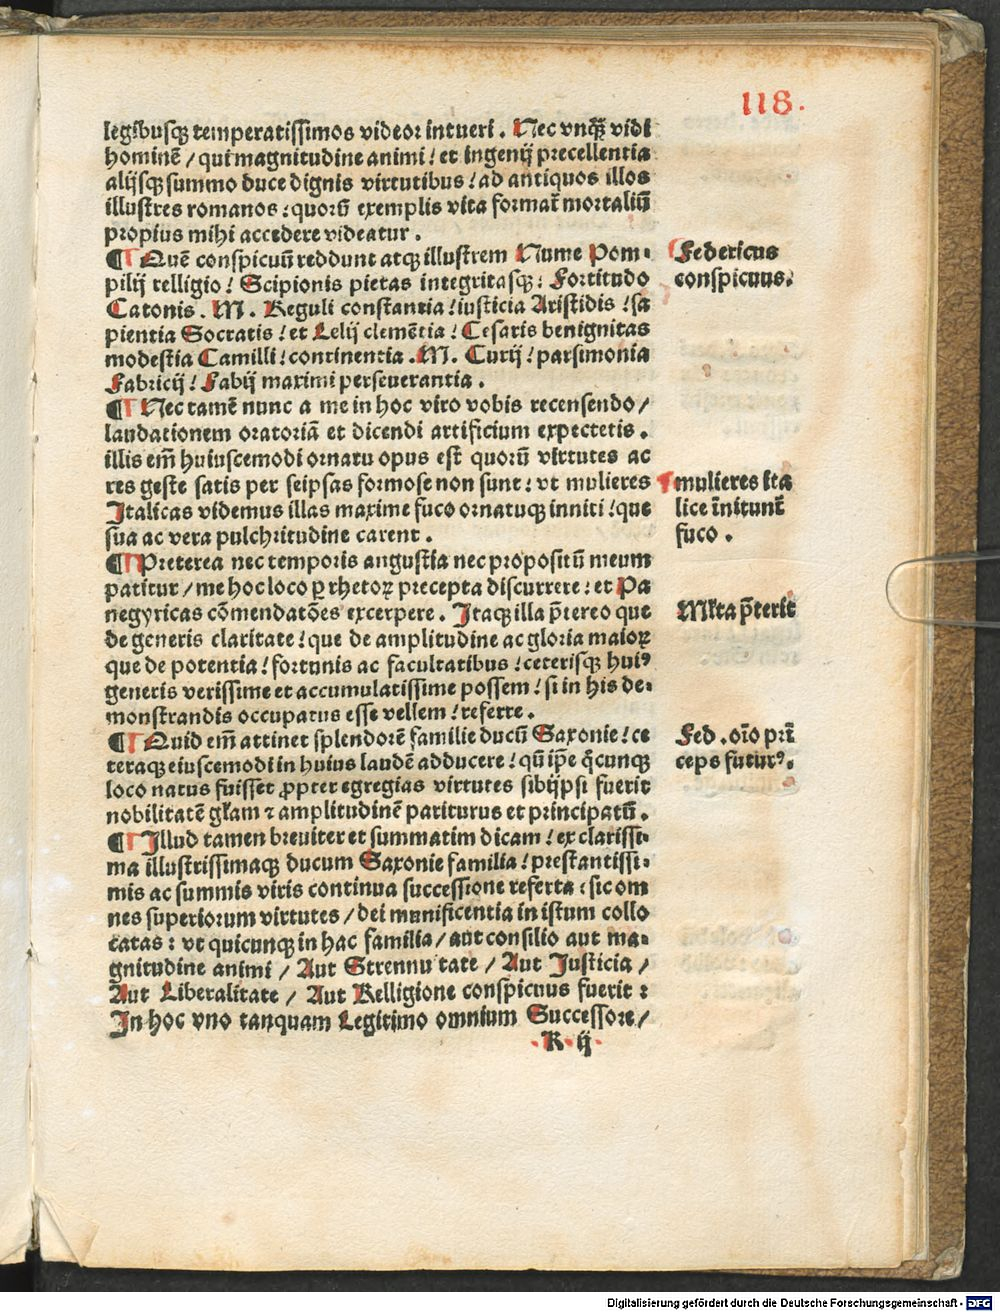 118.
legibusqꝫ temperatissimos videor intueri . Nec vnq̃ꝫ vidi
hominē / qui magnitudine animi ! et ingenij precellentia
alijsqꝫ summo duce dignis virtutibus ! ad antiquos illos
illustres romanos : quorū exemplis vita format̃ mortaliū
propius mihi accedere videatur .
¶ Quē conspicuū reddunt atqꝫ illustrem Nume Pom⸗
pilij relligio ! Scipionis pietas integritasqꝫ : Fortitudo
Catonis . M . Reguli constantia ! iusticia Aristidis ! sa
pientia Socratis ! et Lelij clemētia ! Cesaris benignitas
modestia Camilli : continentia . M . Curij ! parsimonia
Fabricij ! Fabij maximi perseuerantia .
Federicus
conspicuus.
¶ Nec tamē nunc a me in hoc viro vobis recensendo /
laudationem oratoriā et dicendi artificium expectetis .
illis em̄ huiuscemodi ornatu opus est quorū virtutes ac
res geste satis per seipsas formose non sunt : vt mulieres
Italicas videmus illas maxime fuco ornatuqꝫ inniti ! que
sua ac vera pulchritudine carent .
mulieres ita
lice īnitunt̃
fuco .
¶ Preterea nec temporis angustia nec propositū meum
patitur / me hoc loco ꝑ rhetoꝝ precepta discurrere : et Pa
negyricas cōmendatōes excerpere . Itaqꝫ illa p̄tereo que
de generis claritate ! que de amplitudine ac gloria maioꝝ
que de potentia ! fortunis ac facultatibus ! ceterisqꝫ huiꝰ
generis verissime et accumulatissime possem ! si in his de⸗
monstrandis occupatus esse vellem ! referre .
Ml̃ta p̄terit
¶ Quid em̄ attinet splendorē familie ducū Saxonie ! ce
teraqꝫ eiuscemodi in huius laudē adducere ! qū ip̄e q̄cunqꝫ
loco natus fuisset ꝓpter egregias virtutes sibijpsi fuerit
nobilitatē gl̃am ⁊ amplitudinē pariturus et principatū .
Fed . oīo prī
ceps futurꝰ.
¶ Illud tamen breuiter et summatim dicam ! ex clarissi⸗
ma illustrissimaqꝫ ducum Saxonie familia ! prestantissi⸗
mis ac summis viris continua successione referta : sic om
nes superiorum virtutes / dei munificentia in istum collo
catas : vt quicunqꝫ in hac familia / aut consilio aut ma⸗
gnitudine animi / Aut Strennuitate / Aut Justicia /
Aut Liberalitate / Aut Relligione conspicuus fuerit :
In hoc vno tanquam Legitimo omnium Successore /
K ij
Digitalisierung gefördert durch die Deutsche Forschungsgemeinschaft - DFG